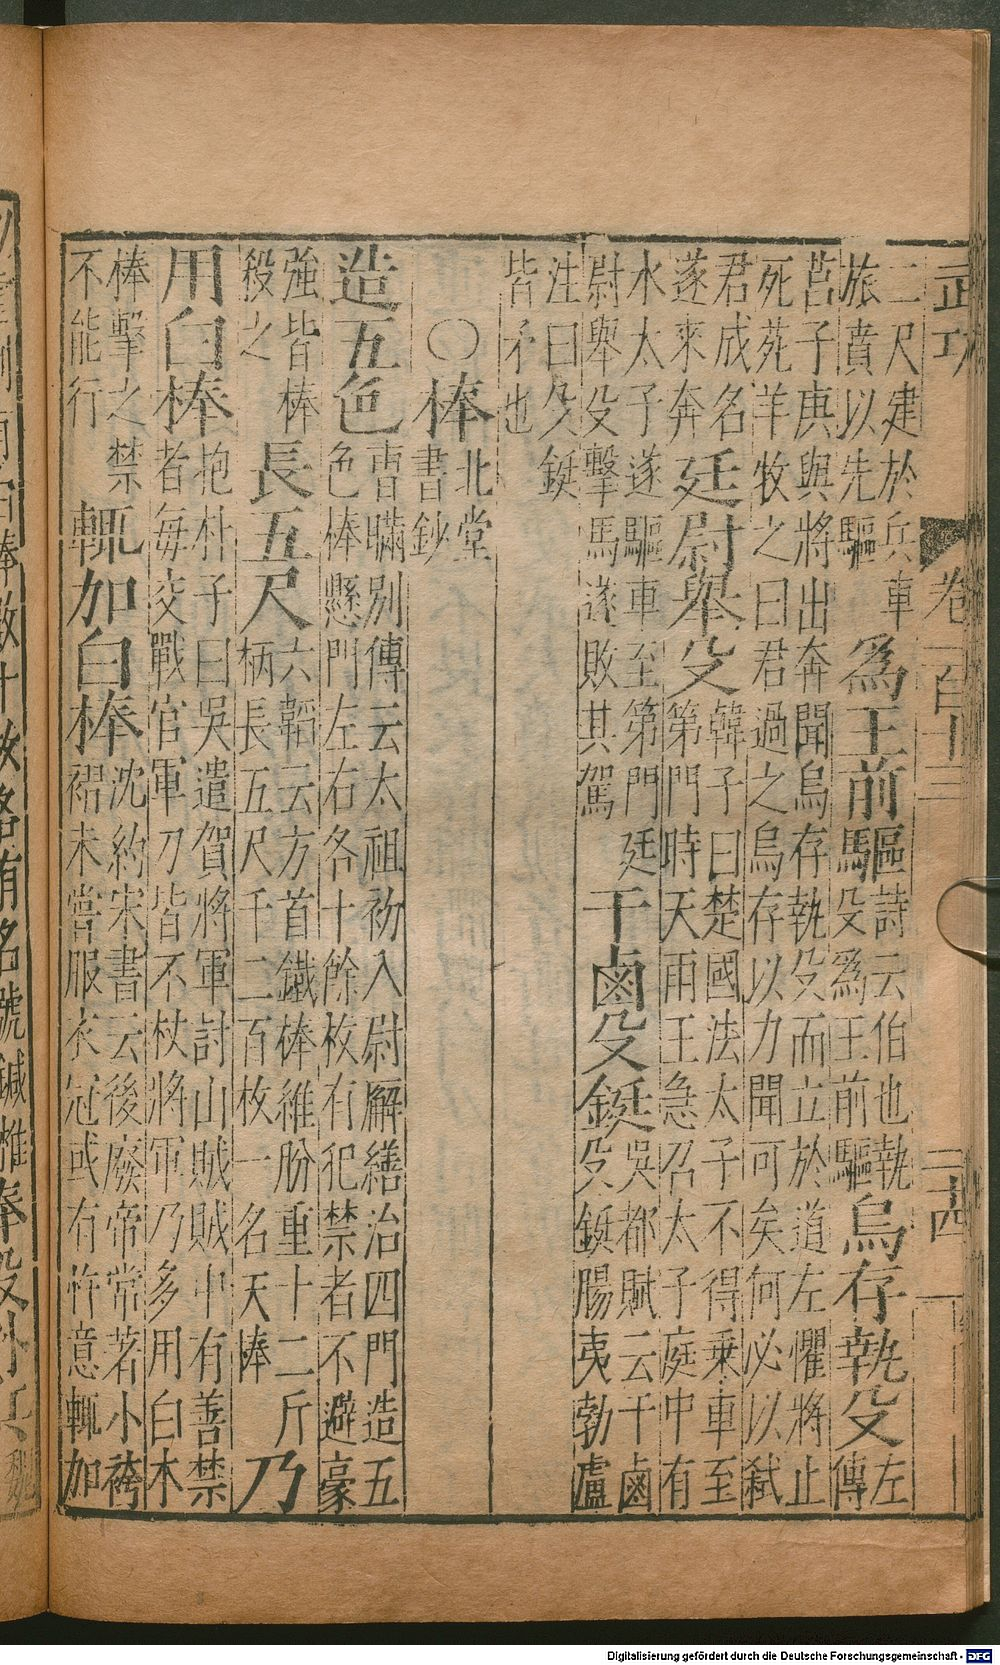 武功 卷一百十三 二十四
二尺建於兵車
旅賁以先驅 爲王前驅 詩云伯也執
殳爲王前驅 烏存執殳 左
傳
莒子庚與將出奔聞烏存執殳而立於道左懼將止
死苑羊牧之曰君過之烏存以力聞可矣何必以弑
君成名
遂來奔 廷尉舉殳 韓子曰楚國法太子不得乗車至
第門時天雨王急召太子庭中有
水太子遂驅車至第門廷
尉舉殳擊馬遂敗其駕 干鹵殳鋋 吳都賦云干鹵
殳鋋腸夷勃盧
注曰殳鋋
皆矛也
〇棒 北堂
書鈔
造五色 曹瞞別傳云太祖初入尉廨繕治四門造五
色棒懸門左右各十餘枚有犯禁者不避豪
強皆棒
殺之 長五尺 六韜云方首鐵棒維朌重十二斤
柄長五尺千二百枚一名天棒 乃
用白棒 抱朴子曰吳遣賀將軍討山賊賊中有善禁
者每交戰官軍刀皆不杖將軍乃多用白木
棒擊之禁
不能行 輒加白棒 沈約宋書云後廢帝常著小袴
褶未嘗服衣冠或有忤意輒加
Digitalisierung gefördert durch die Deutsche Forschungsgemeinschaft - DFG